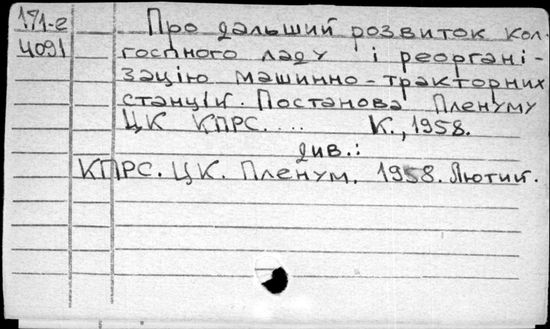 171-е
4091
Про дальший розвиток кол-
госпного ладу і реоргані-
зацію машинно-тракторних
станцій. Постанова Пленуму
ЦК КПРС.... К., 1958.
див.:
КПРС. ЦК. Пленум. 1958. Лютий.